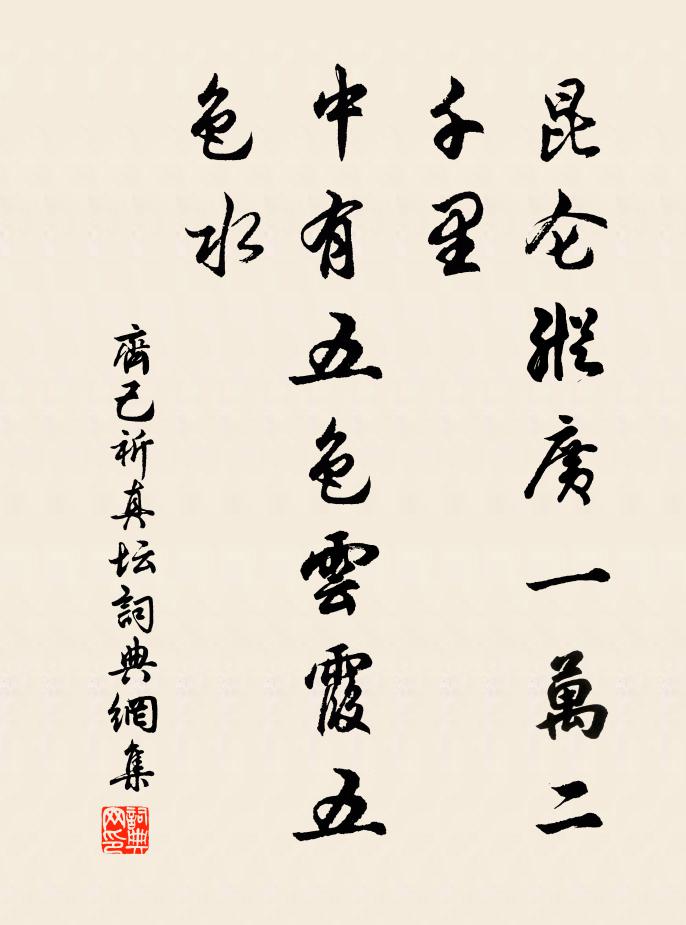 昆仑縱廣一萬二
千里
中有五色雲霞五
色水
齊己祈真坛詞典網集
詞典
网印